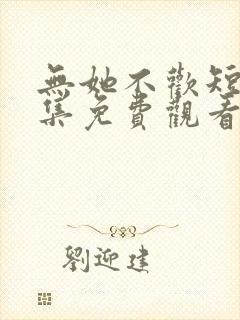 無她不歡短
集免費觀看
劉迎建